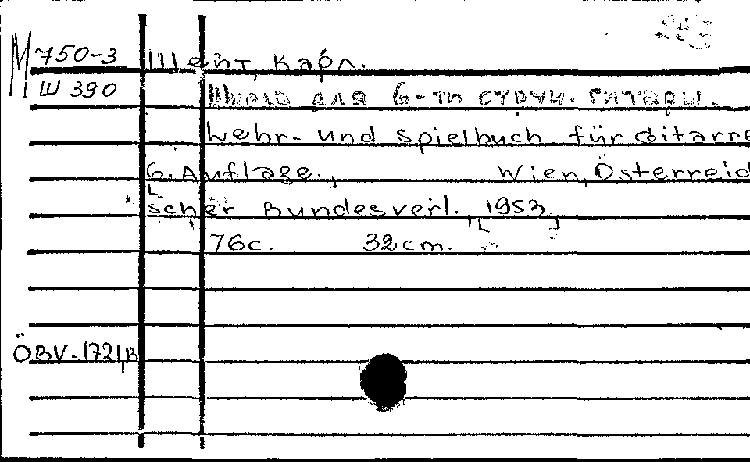 М 750-3 Шейт, Карл.
Ш 390 Школа для 6-ти струн. гитары.
Lehr- und Spielbuch für Gitarre
6. Auflage., Wien, Österreichi
scher Bundesverl., 1953
76с. 32cm.
ÖBV-1721B